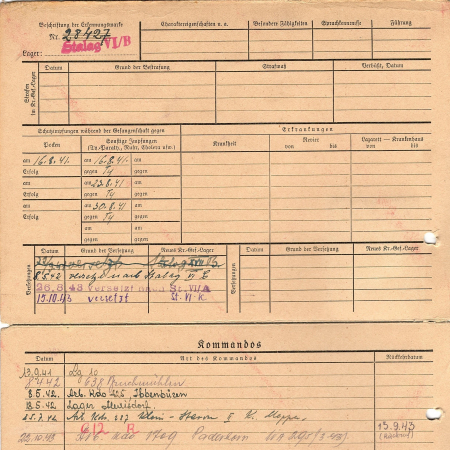 Beschriftung der Erkennungsmarke
Nr. 28427
Lager: Stalag VI/B
Charaktereigenschaften u. a.
Besondere Fähigkeiten
Sprachkenntnisse
Führung
Strafen im Kr.-Gef.-Lager
Datum
Grund der Bestrafung
Strafmaß
Verbüßt, Datum
Schutzimpfungen während der Gefangenschaft gegen
Erkrankungen
Pocken
Sonstige Impfungen
(Ty.-Paraty., Ruhr, Cholera usw.)
Krankheit
Revier
von bis
Lazarett – Krankenhaus
von bis
am 16.8.41. am 16.8.41.
Erfolg gegen Ty
am am 23.8.41
Erfolg gegen Ty
am am 30.8.41
Erfolg gegen Ty
am am
Erfolg gegen
Versetzungen
Datum
Grund der Versetzung
Neues Kr.-Gef.-Lager
Versetzungen
Datum
Grund der Versetzung
Neues Kr.-Gef.-Lager
versetzt
8.5.42 versetzt nach Stalag VI C
26.8.43 versetzt nach St. VI/A
19.10.43 versetzt St. VI-K.
Kommandos
Datum
Art des Kommandos
Rückkehrdatum
13.9.41 Lg 10
8.4.42 638
8.5.42, Arb. Kdo 425 Ibbenbüren
18.5.42, Lager
25.7.42 Arb. Kdo. II K. Meppen
13.9.43
612 R
22.10.43 Paderborn